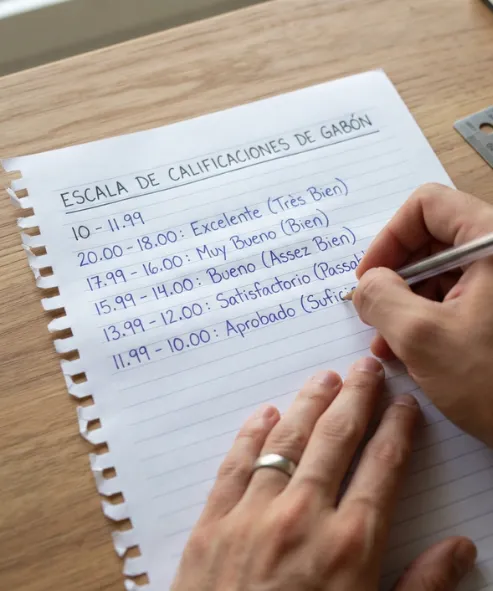 ESCALA DE CALIFICACIONES DE GABÓN
10 - 11.99
20.00 - 18.00: Excelente (Très Bien)
17.99 - 16.00: Muy Bueno (Bien)
15.99 - 14.00: Bueno (Assez Bien)
13.99 - 12.00: Satisfactorio (Passa
11.99 - 10.00: Aprobado (Sufici